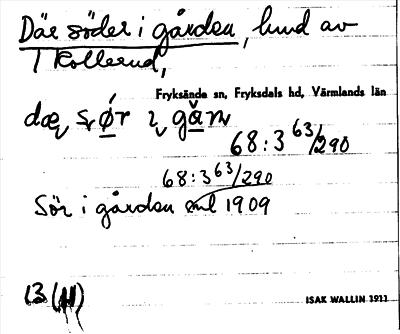 Där söder i gården, lund av
T Kollerud,
Fryksände sn, Fryksdals hd, Värmlands län
dæ sør ɩ gån
68:3 63/290
68:3 63/290
Sör i gården enl 1909
13 (11)
ISAK WALLIN 1911